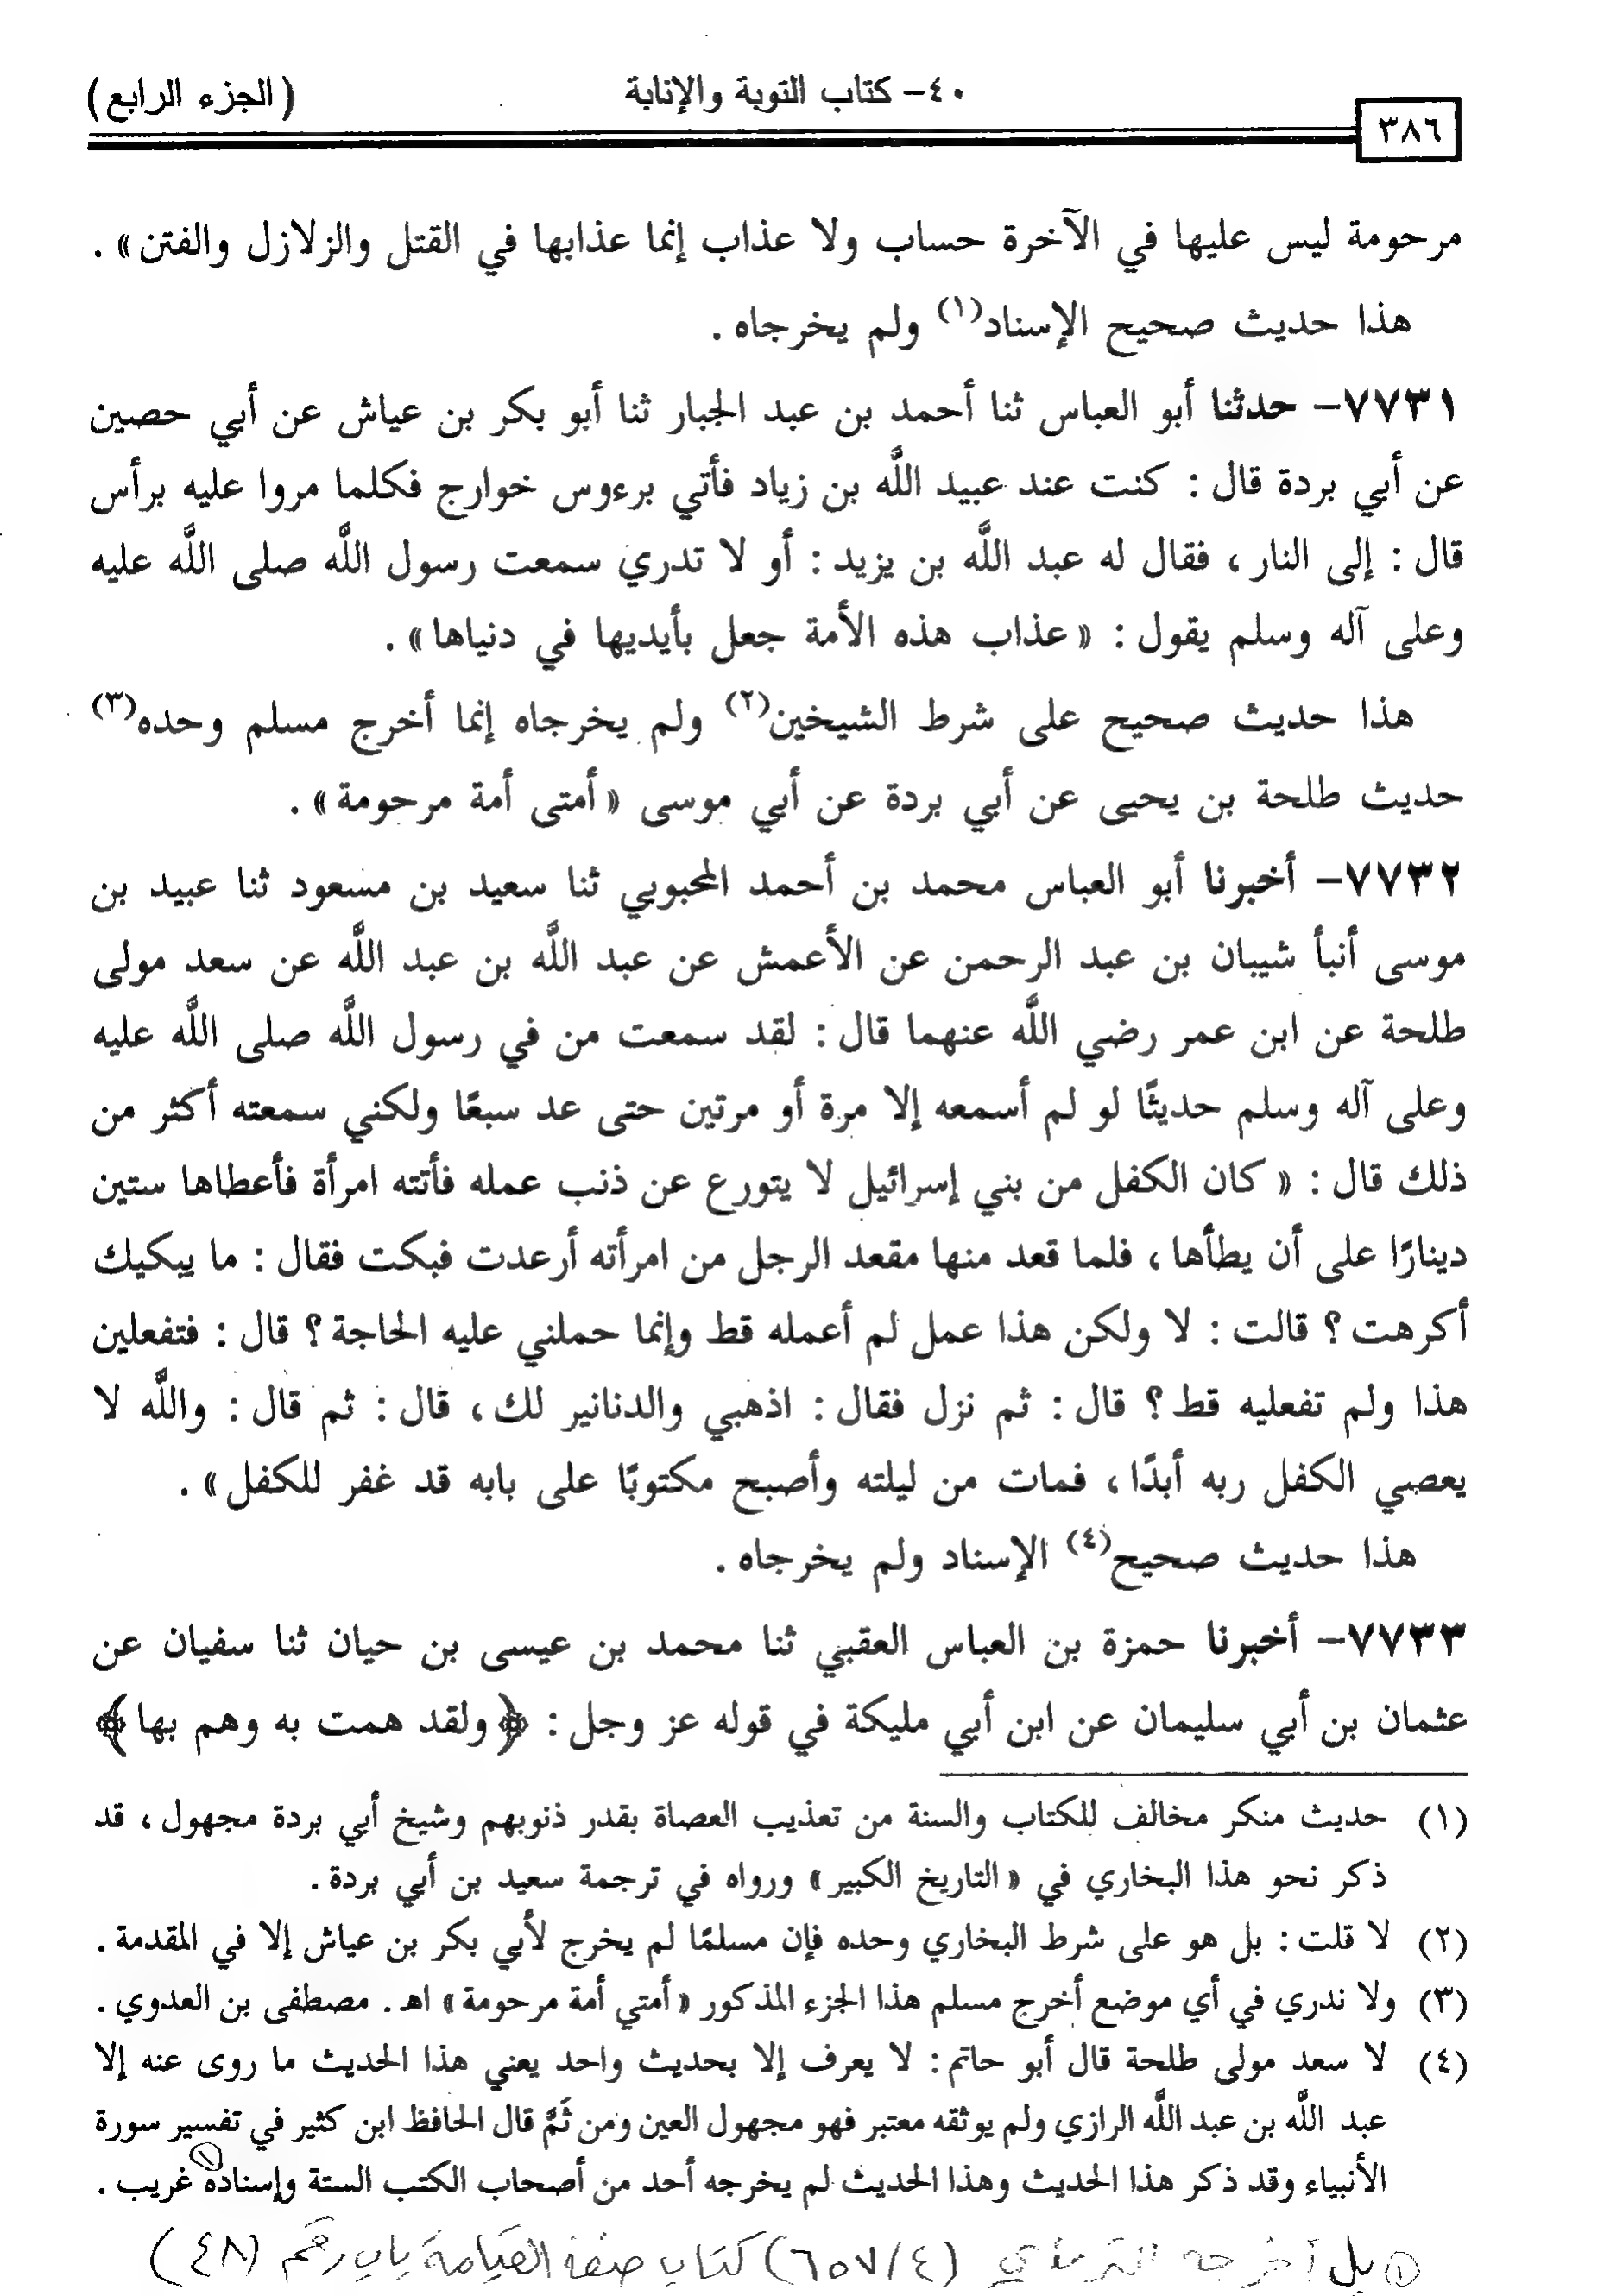 ٤٠- كتاب التوبة والإنابة
(الجزء الرابع)
٣٨٦
مرحومة ليس عليها في الآخرة حساب ولا عذاب إنما عذابها في القتل والزلازل والفتن» .
هذا حديث صحيح الإسناد(١) ولم يخرجاه .
٧٧٣١- حدثنا أبو العباس ثنا أحمد بن عبد الجبار ثنا أبو بكر بن عياش عن أبي حصين
عن أبي بردة قال : كنت عند عبيد اللَّه بن زياد فأتي برءوس خوارج فكلما مروا عليه برأس
قال : إلى النار ، فقال له عبد اللَّه بن يزيد : أو لا تدري سمعت رسول اللَّه صلى اللَّه عليه
وعلى آله وسلم يقول : «عذاب هذه الأمة جعل بأيديها في دنياها» .
هذا حديث صحيح على شرط الشيخين(٢) ولم يخرجاه إنما أخرج مسلم وحده(٣)
حديث طلحة بن يحيى عن أبي بردة عن أبي موسى «أمتى أمة مرحومة» .
٧٧٣٢- أخبرنا أبو العباس محمد بن أحمد المحبوبي ثنا سعيد بن مسعود ثنا عبيد بن
موسى أنبأ شيبان بن عبد الرحمن عن الأعمش عن عبد اللَّه بن عبد اللَّه عن سعد مولى
طلحة عن ابن عمر رضي اللَّه عنهما قال : لقد سمعت من في رسول اللَّه صلى اللَّه عليه
وعلى آله وسلم حديثًا لو لم أسمعه إلا مرة أو مرتين حتى عد سبعًا ولكني سمعته أكثر من
ذلك قال : «كان الكفل من بني إسرائيل لا يتورع عن ذنب عمله فأتته امرأة فأعطاها ستين
دينارًا على أن يطأها ، فلما قعد منها مقعد الرجل من امرأته أرعدت فبكت فقال : ما يبكيك
أكرهت ؟ قالت : لا ولكن هذا عمل لم أعمله قط وإنما حملني عليه الحاجة ؟ قال : فتفعلين
هذا ولم تفعليه قط ؟ قال : ثم نزل فقال : اذهبي والدنانير لك ، قال : ثم قال : واللَّه لا
يعصي الكفل ربه أبدًا ، فمات من ليلته وأصبح مكتوبًا على بابه قد غفر للكفل» .
هذا حديث صحيح(٤) الإسناد ولم يخرجاه .
٧٧٣٣- أخبرنا حمزة بن العباس العقبي ثنا محمد بن عيسى بن حيان ثنا سفيان عن
عثمان بن أبي سليمان عن ابن أبي مليكة في قوله عز وجل : ﴿ولقد همت به وهم بها﴾
(١) حديث منكر مخالف للكتاب والسنة من تعذيب العصاة بقدر ذنوبهم وشيخ أبي بردة مجهول ، قد
ذكر نحو هذا البخاري في «التاريخ الكبير» ورواه في ترجمة سعيد بن أبي بردة .
(٢) لا قلت : بل هو على شرط البخاري وحده فإن مسلمًا لم يخرج لأبي بكر بن عياش إلا في المقدمة .
(٣) ولا ندري في أي موضع أخرج مسلم هذا الجزء المذكور «أمتي أمة مرحومة» اهـ . مصطفى بن العدوي .
(٤) لا سعد مولى طلحة قال أبو حاتم : لا يعرف إلا بحديث واحد يعني هذا الحديث ما روى عنه إلا
عبد اللَّه بن عبد اللَّه الرازي ولم يوثقه معتبر فهو مجهول العين ومن ثَمَّ قال الحافظ ابن كثير في تفسير سورة
الأنبياء وقد ذكر هذا الحديث وهذا الحديث لم يخرجه أحد من أصحاب الكتب الستة وإسناده(١) غريب .
(١) بل أخرجه الترمذي (٦٥٧/٤) كتاب صفة القيامة باب رقم (٤٨)